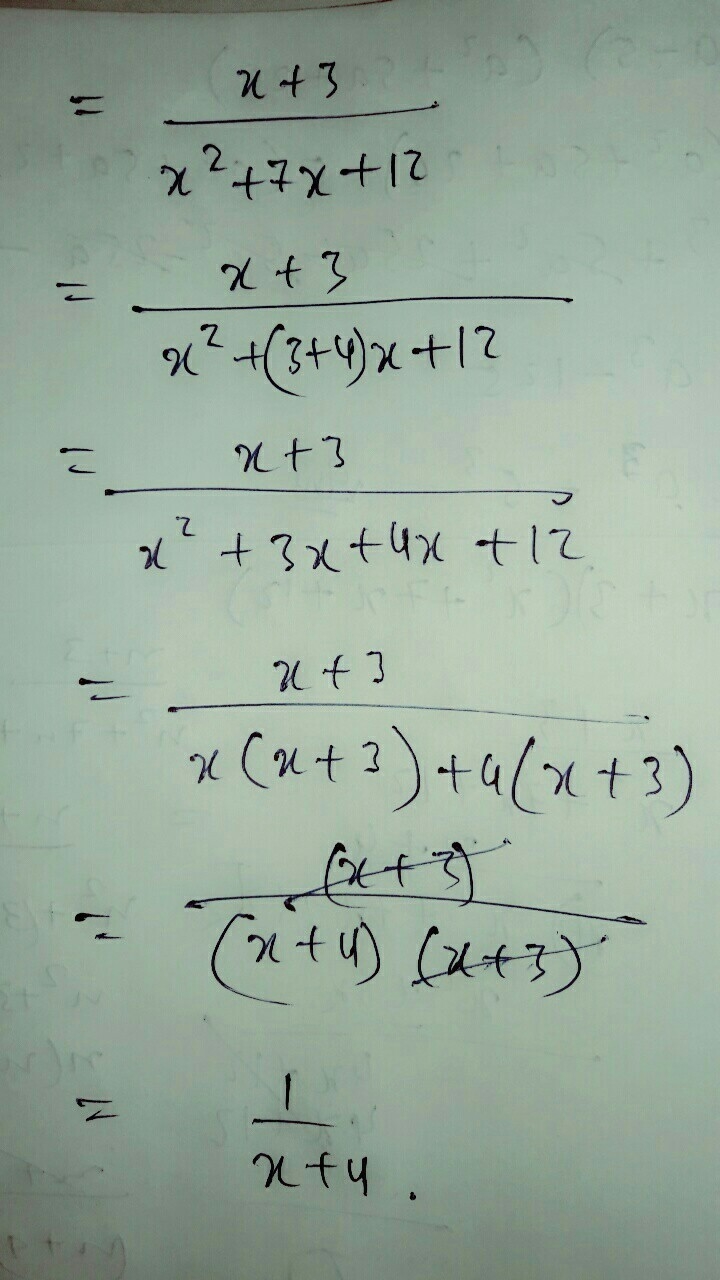 = x+3 / x²+7x+12
= x+3 / x²+(3+4)x+12
= x+3 / x²+3x+4x+12
= x+3 / x(x+3)+4(x+3)
= (x+3) / (x+4)(x+3)
= 1 / x+4.